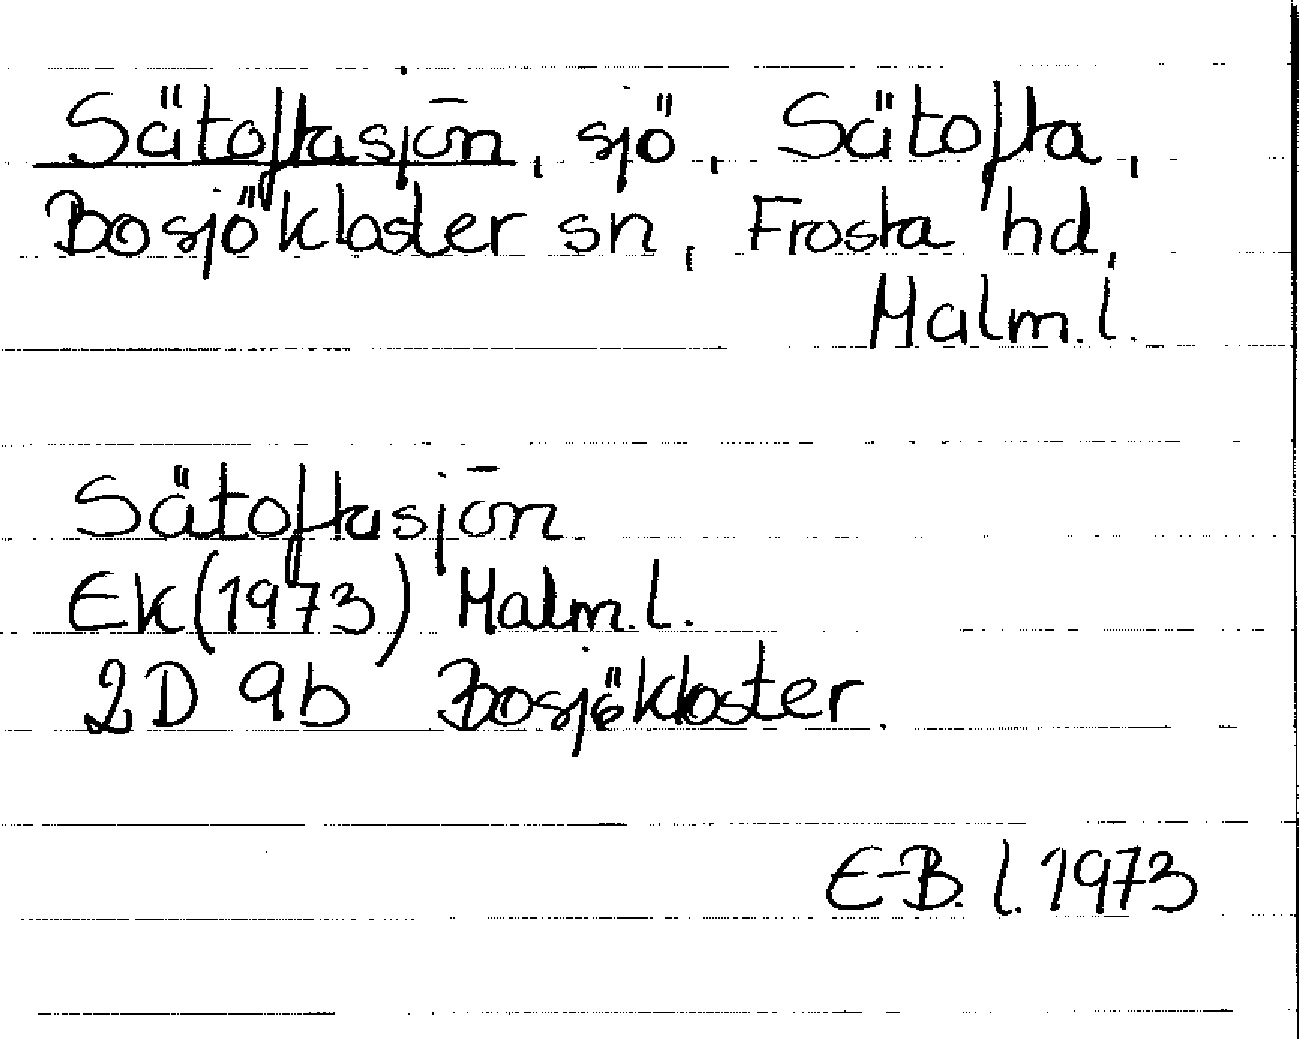 Sätoftasjön, sjö, Sätofta,
Bosjökloster sn, Frosta hd,
Malm.l.
Sätoftasjön
Ek(1973) Malm.l.
2D 9b Bosjökloster.
E-B. l. 1973